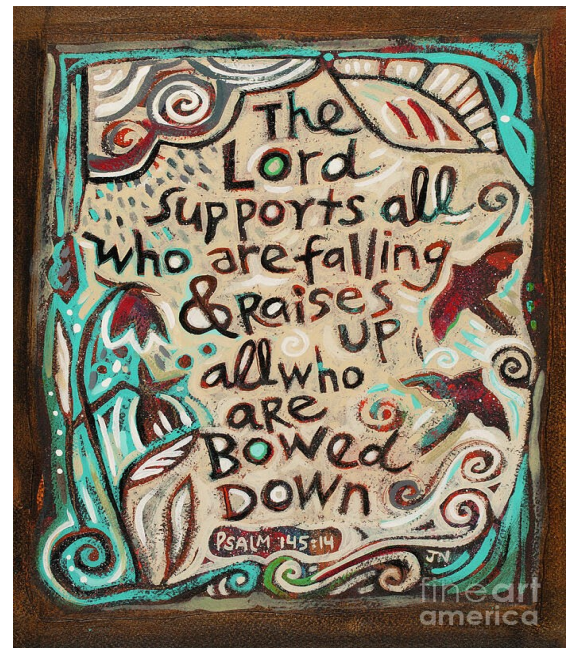 The
Lord
supports all
who are falling
& Raises
up
all who
are
Bowed
Down
PSALM 145:14
JN
fineart
america